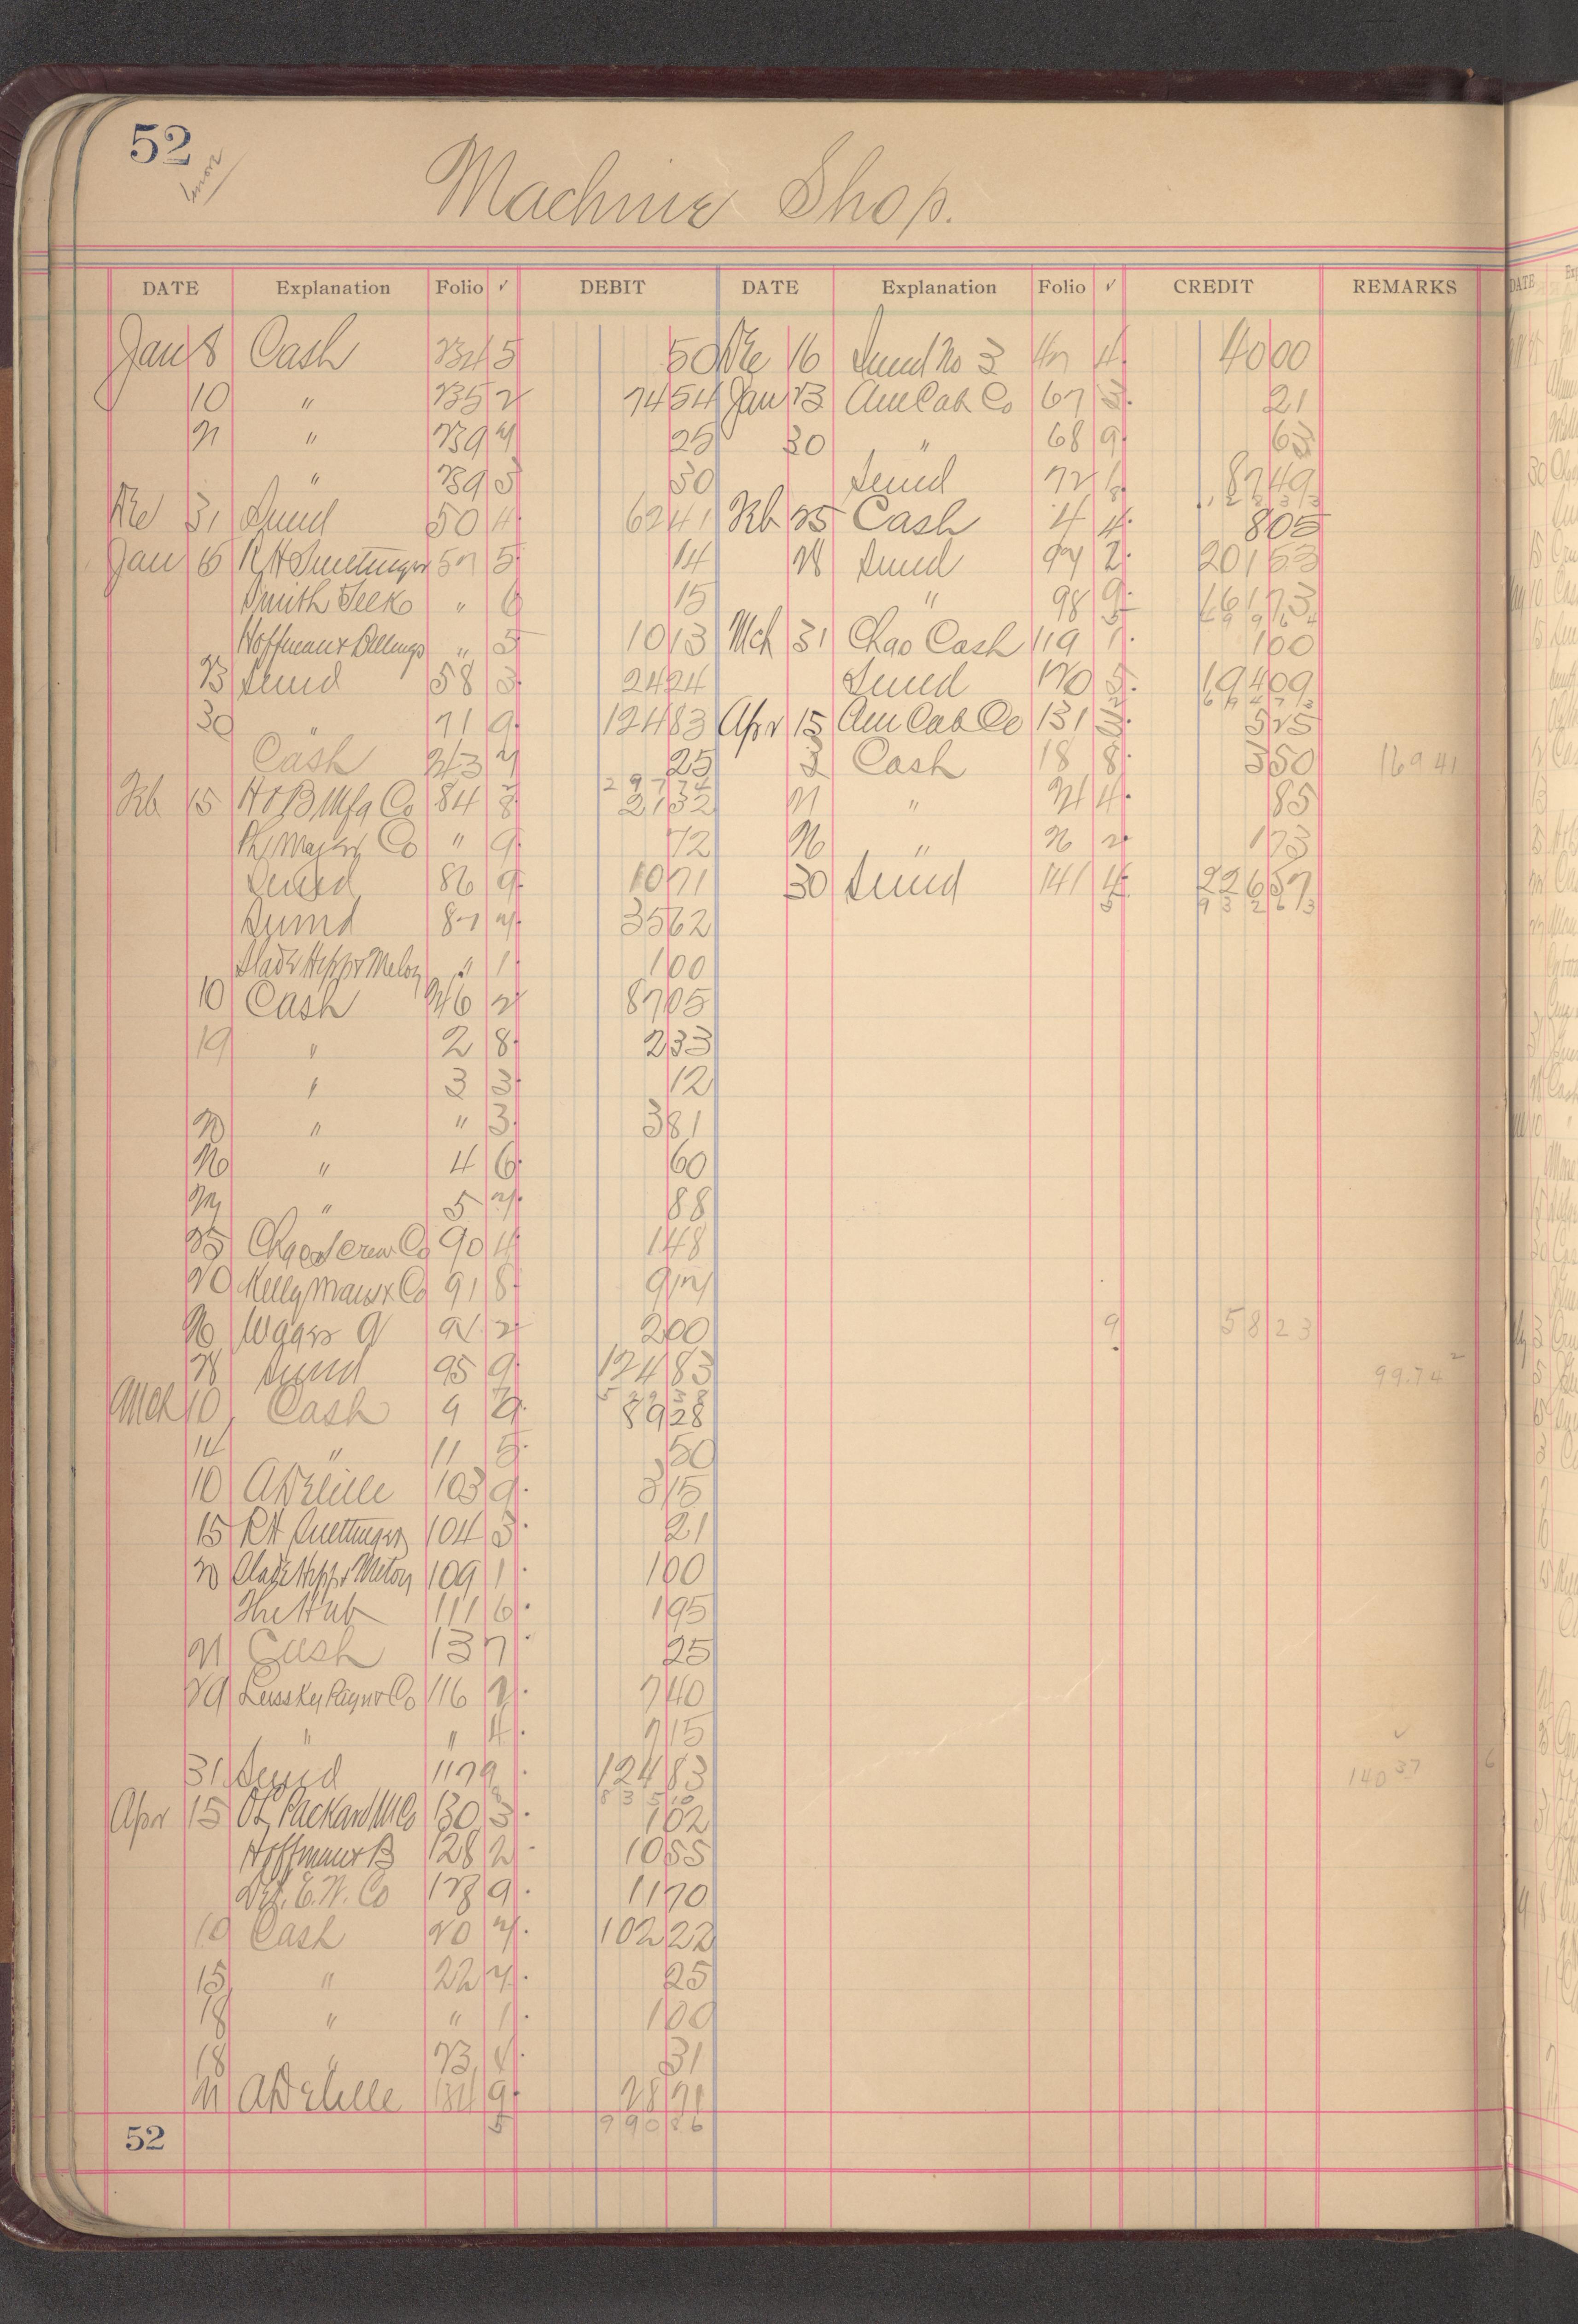 52
Machine Shop.
DATE Explanation Folio ✓ DEBIT DATE Explanation Folio ✓ CREDIT REMARKS
Jan 8 Cash 234 5 50 Dec 16 Sund No 3 47 4 40 00
10 " 235 2 74 54 Jan 23 Am Cab Co 67 3 21
21 " 239 7 25 30 " 68 9 63
" 239 3 30 Sund 72 87 49
Dec 31 Sund 50 4 62 41 Feb 25 Cash 4 4 8 05
Jan 15 R H Suettinger 57 5 14 28 Sund 94 2 201 53
" 6 15 " 98 9 161 73
Hoffman & Billings " 5 10 13 Mch 31 Chao Cash 119 1 1 00
23 Sund 58 3 24 24 Sund 120 5 194 09
30 " 71 9 124 83 Apr 15 Am Cab Co 131 3 5 25
Cash 243 7 25 3 Cash 18 8 3 50 169 41
297 34
Feb 15 H & B Mfg Co 84 8 21 32 21 " 24 4 85
Co " 9 72 26 " 26 2 1 73
Sund 86 9 10 71 30 Sund 141 4 226 57
932 67
Sund 87 7 35 62
Slade Hipp & Meloy " 1 1 00
10 Cash 246 2 87 05
19 " 2 8 2 33
" 3 3 12
20 " " 3 3 81
26 " 4 6 60
27 " 5 7 88
25 Chao Screw Co 90 4 1 48
20 Kelly Maus & Co 91 8 9 17
26 92 2 2 00 9 58 23
28 Sund 95 9 124 83 99.74
Mch 10 Cash 9 9 89 28
14 " 11 5 50
10 A Delille 103 9 3 15
15 R H Suettinger 104 3 21
20 Slade Hipp & Meloy 109 1 1 00
The Hub 111 6 1 95
21 Cash 13 7 25
29 Co 116 2 7 40
" " 4 7 15
31 Sund 117 9 124 83 140 37
835 10
Apr 15 O L Packard M Co 130 3 1 02
Hoffman & B 128 2 10 55
Co 128 9 11 70
10 Cash 20 7 102 22
15 " 22 7 25
18 " " 1 1 00
18 " 23 4 31
21 A Delille 134 9 28 71
5 990 86
52